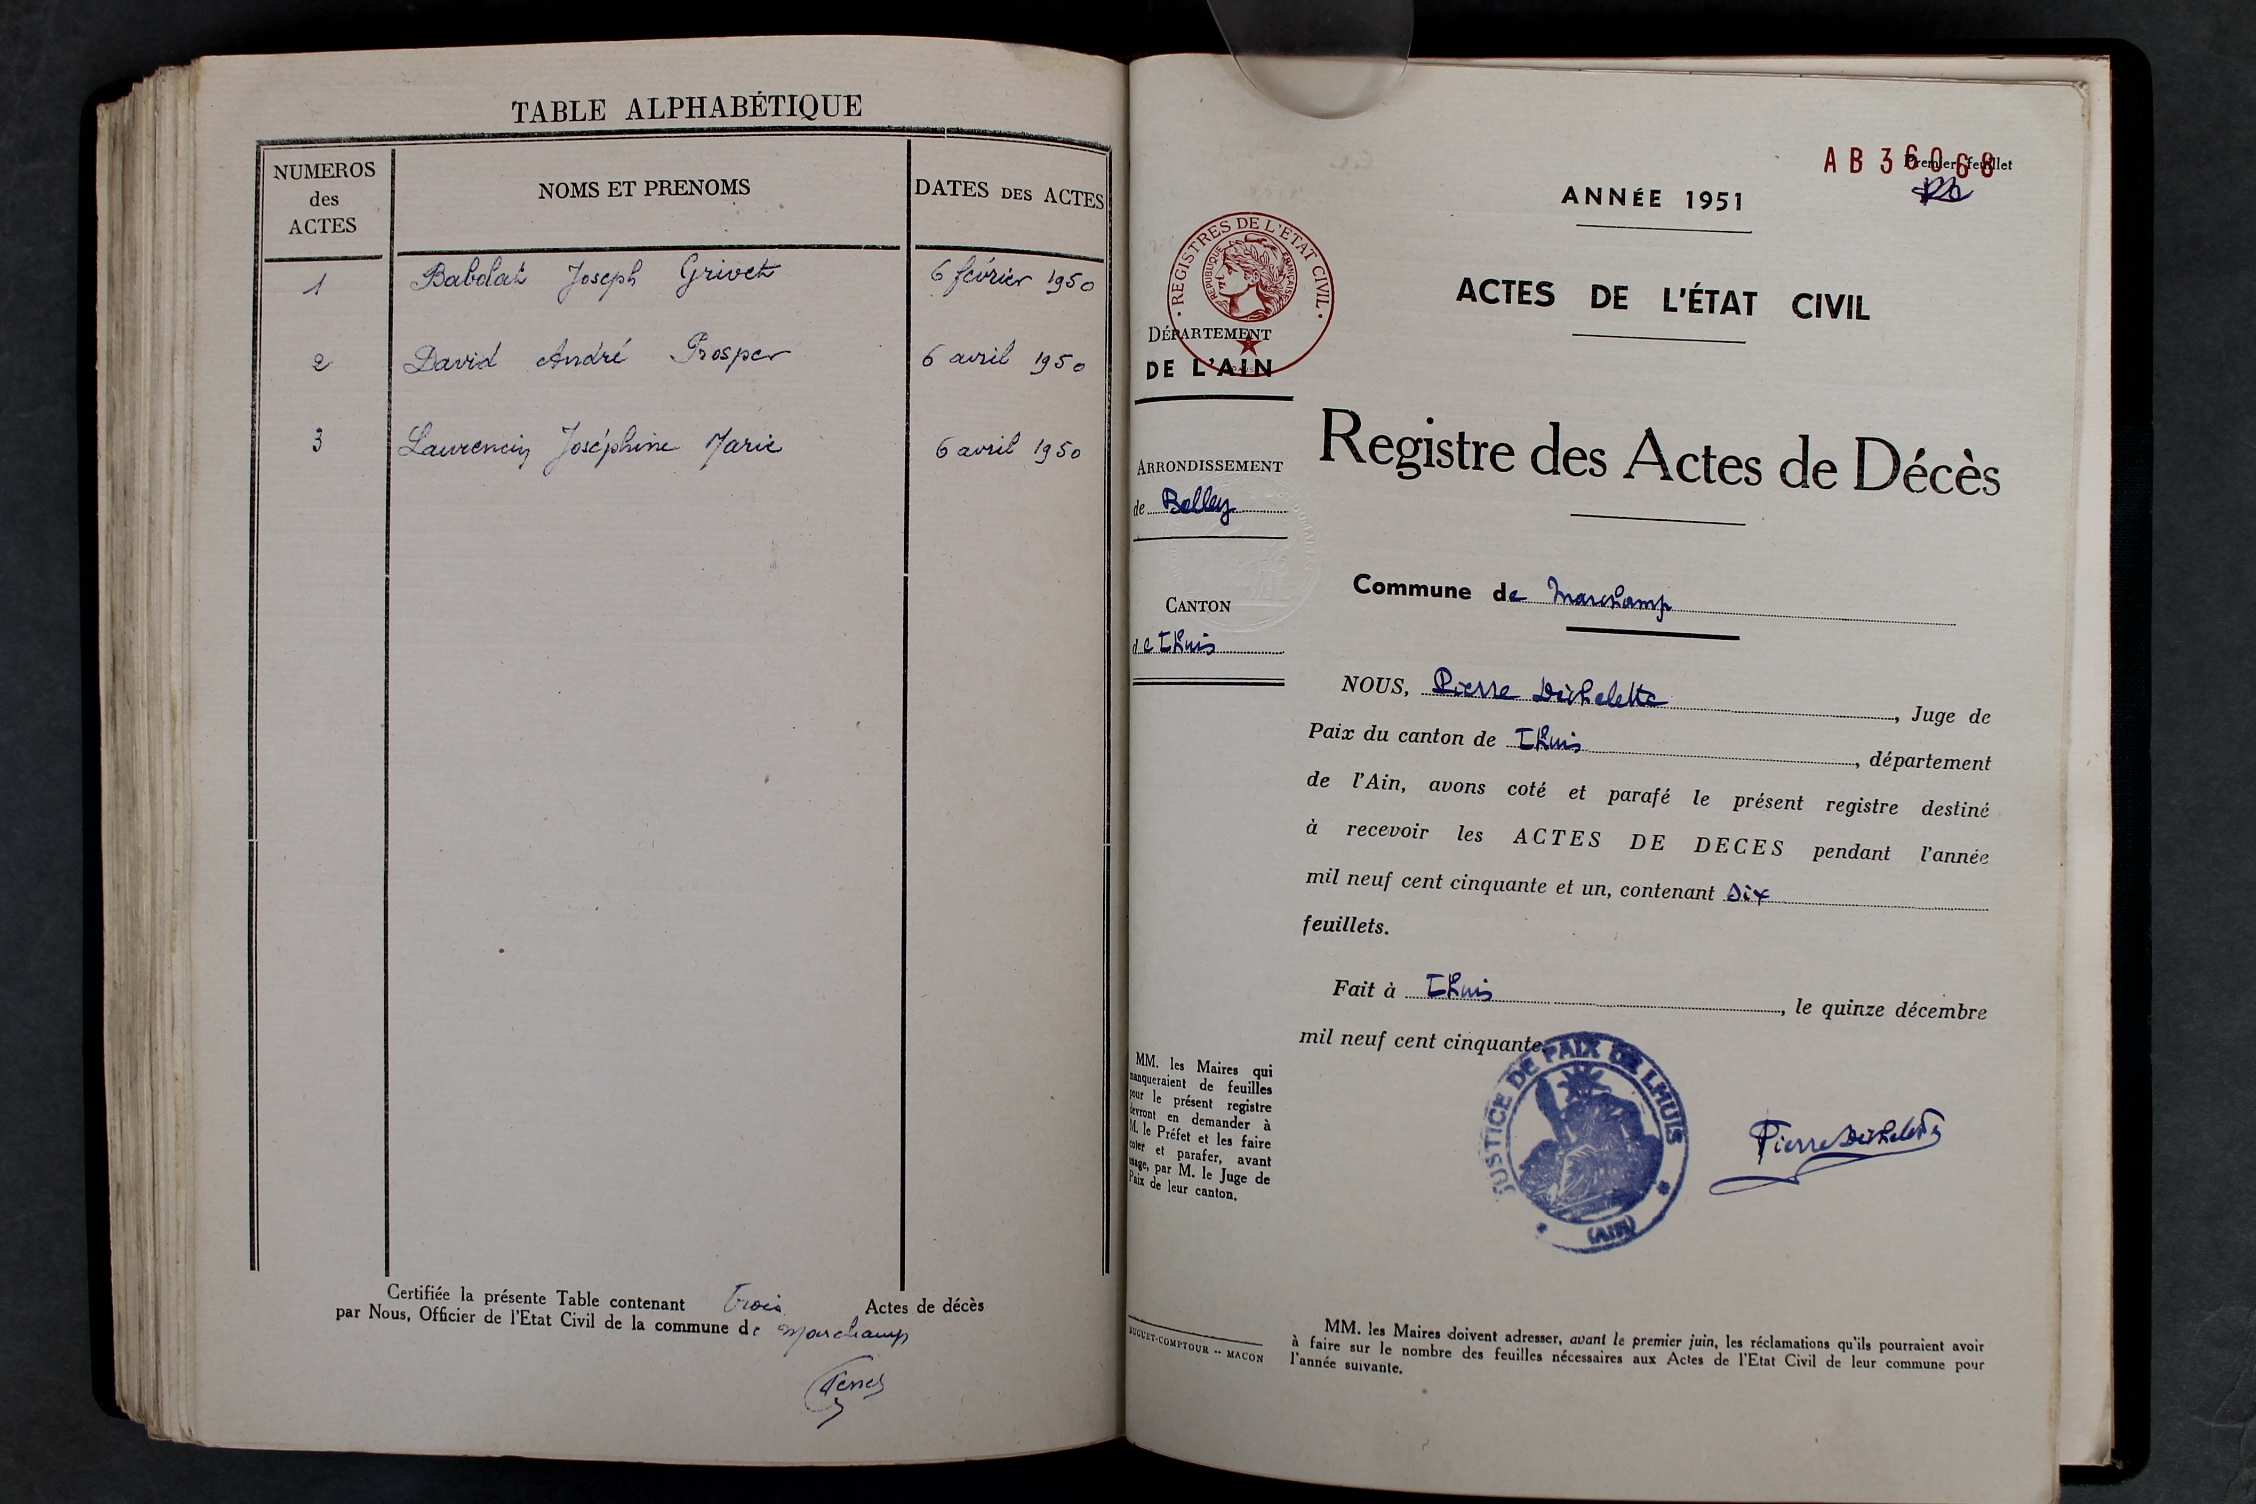 TABLE ALPHABÉTIQUE
NUMEROS des ACTES
NOMS ET PRENOMS
DATES DES ACTES
1 Babolat Joseph Grivet 6 février 1950
2 David André Prosper 6 avril 1950
3 Laurencin Joséphine Marie 6 avril 1950
Certifiée la présente Table contenant trois Actes de décès
par Nous, Officier de l'Etat Civil de la commune de Marchamp
AB 36068
Premier feuillet
ANNÉE 1951
REGISTRES DE L'ÉTAT CIVIL
RÉPUBLIQUE FRANÇAISE
ACTES DE L'ÉTAT CIVIL
DÉPARTEMENT
DE L'AIN
Registre des Actes de Décès
ARRONDISSEMENT
de Belley
CANTON
de Lhuis
Commune de Marchamp
NOUS, Pierre Déchelette, Juge de
Paix du canton de Lhuis, département
de l'Ain, avons coté et parafé le présent registre destiné
à recevoir les ACTES DE DECES pendant l'année
mil neuf cent cinquante et un, contenant six
feuillets.
Fait à Lhuis, le quinze décembre
mil neuf cent cinquante.
JUSTICE DE PAIX DE LHUIS
(AIN)
Pierre Déchelette
MM. les Maires qui
manqueraient de feuilles
pour le présent registre
devront en demander à
M. le Préfet et les faire
coter et parafer, avant
usage, par M. le Juge de
Paix de leur canton.
BUGUET-COMPTOUR -- MACON
MM. les Maires doivent adresser, avant le premier juin, les réclamations qu'ils pourraient avoir
à faire sur le nombre des feuilles nécessaires aux Actes de l'Etat Civil de leur commune pour
l'année suivante.